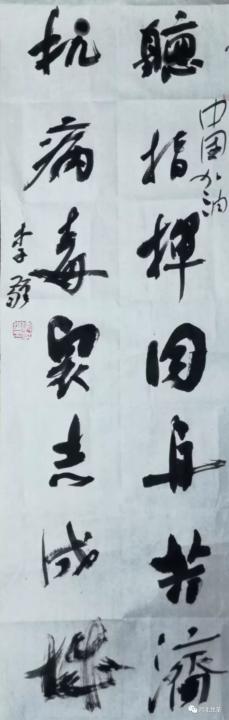 中国加油
聽指揮同舟共濟
抗病毒眾志成城
李